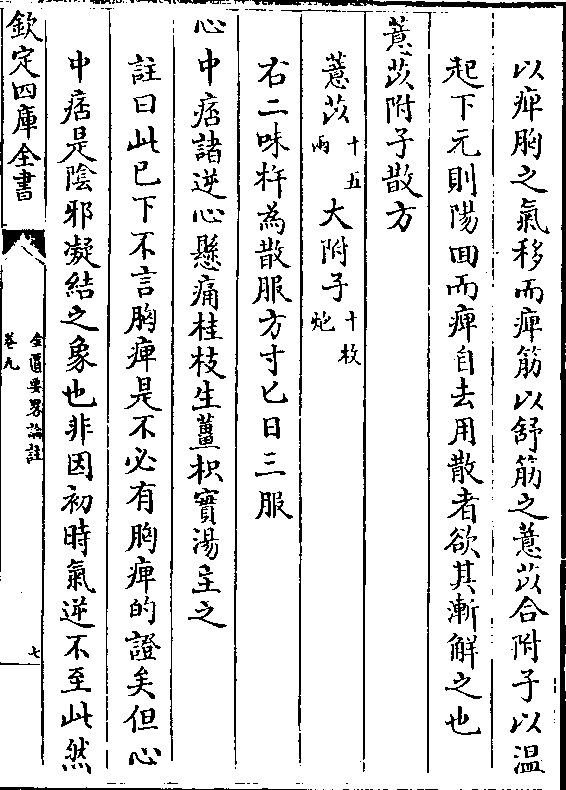 以痺胸之氣移而痺筋以舒筋之薏苡合附子以温
起下元則陽回而痺自去用散者欲其漸解之也
薏苡附子散方
薏苡十五兩 大附子十枚炮
右二味杵為散服方寸匕日三服
心中痞諸逆心懸痛桂枝生薑枳實湯主之
註曰此已下不言胸痺是不必有胸痺的證矣但心
中痞是陰邪凝結之象也非因初時氣逆不至此然
欽定四庫全書
金匱要畧論註
卷九
七